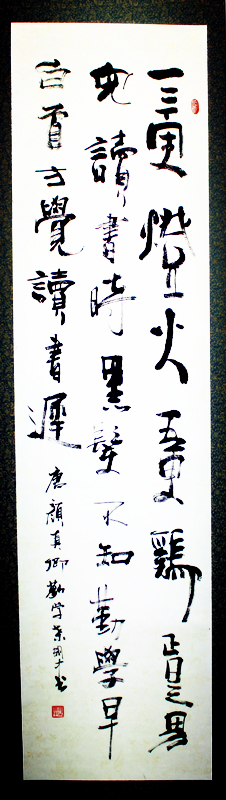 三更燈火五更鷄正是男
兒讀書時黑髮不知勤學早
白首方覺讀書遲
唐顏真卿勸學